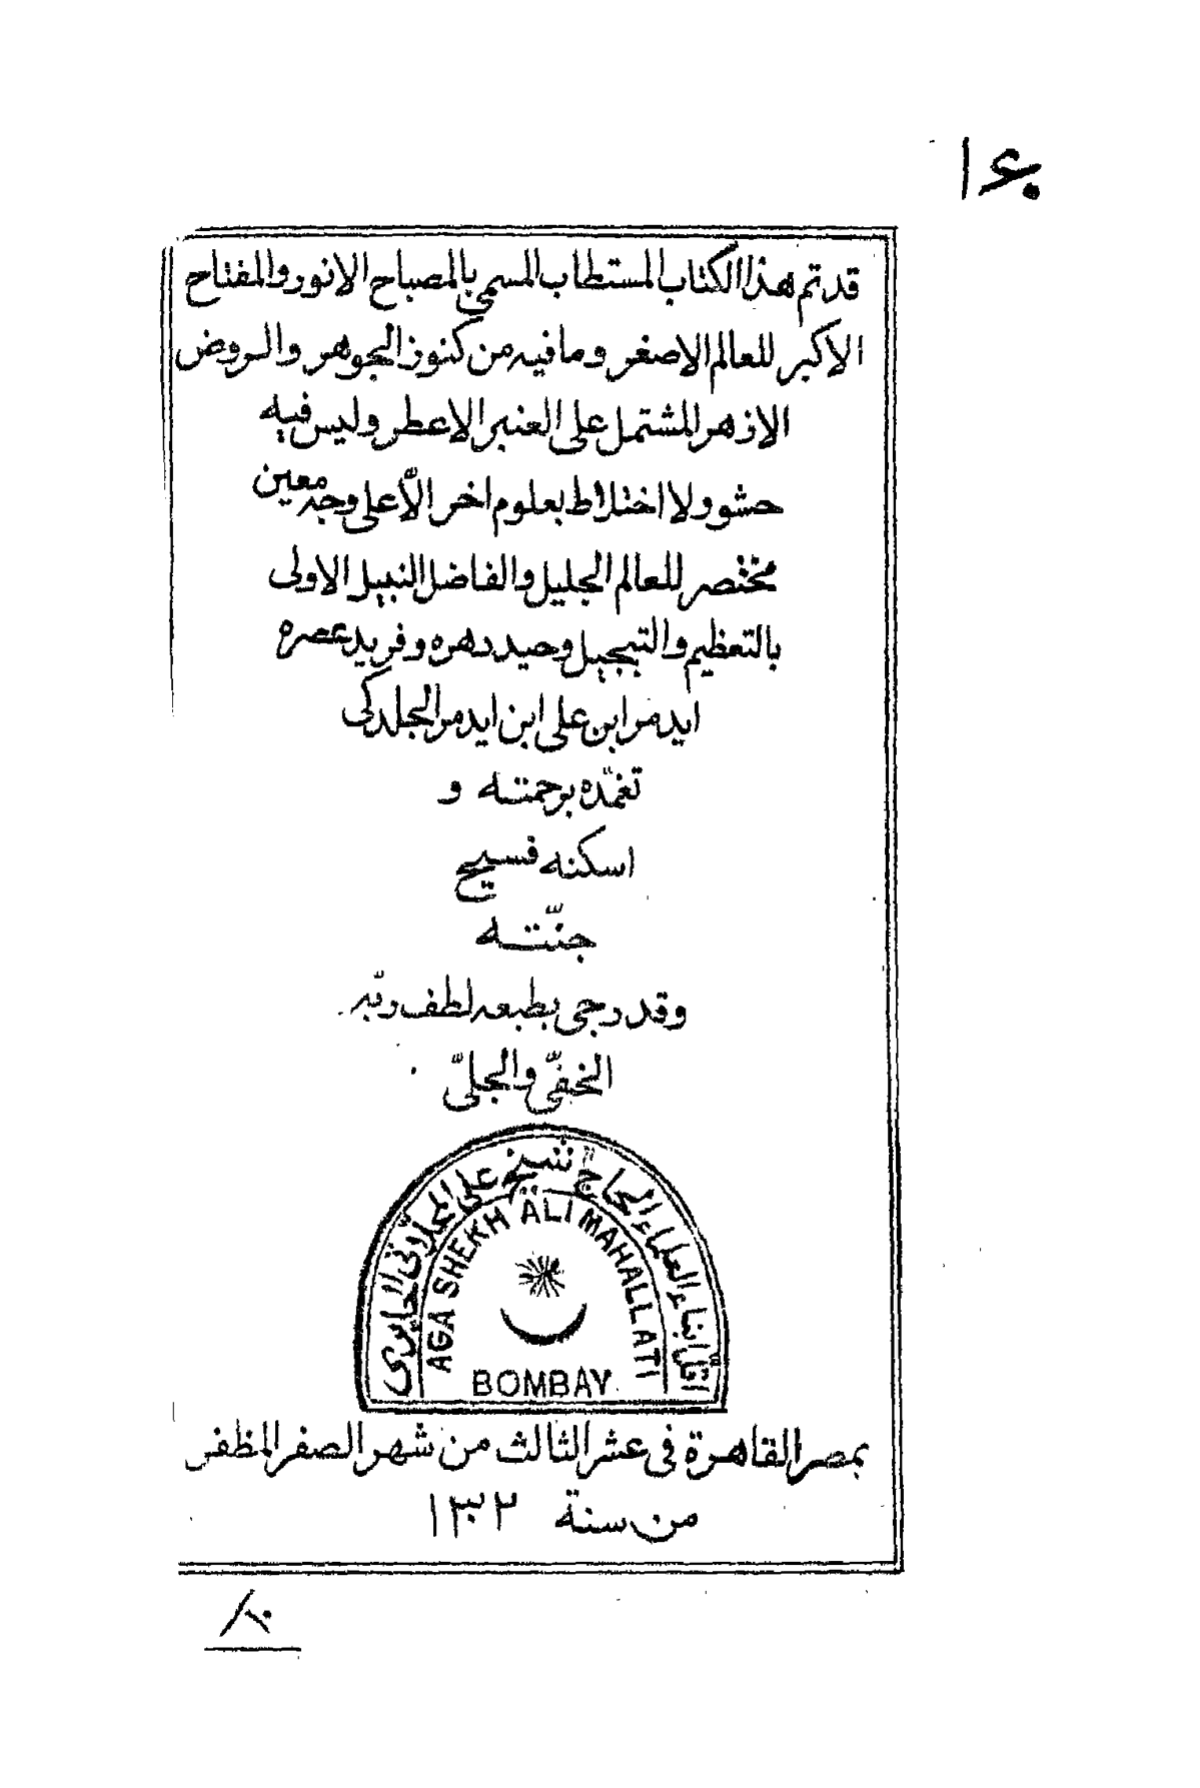 ١٤٠
قد تم هذا الكتاب المستطاب المسمى بالمصباح الانور والمفتاح
الاكبر للعالم الاصغر وما فيه من كنوز الجوهر والروض
الازهر المشتمل على العنبر الاعطر وليس فيه
حشو ولا اختلاط بعلوم اخر الّا على وجه معين
مختصر للعالم الجليل والفاضل النبيل الاولى
بالتعظيم والتبجيل وحيد دهره وفريد عصره
ايدمر ابن على ابن ايدمر الجلدكى
تغمّده برحمته و
اسكنه فسيح
جنّته
وقد رجى بطبعه لطف ربّه
الخفىّ والجلىّ
اقلّ ابناء العلماء الحاج شيخ على المحلّاتى الحايرى
AGA SHEKH ALI MAHALLATI
BOMBAY.
بمصر القاهرة فى عشر الثالث من شهر الصفر المظفر
من سنة ١٣٠٢